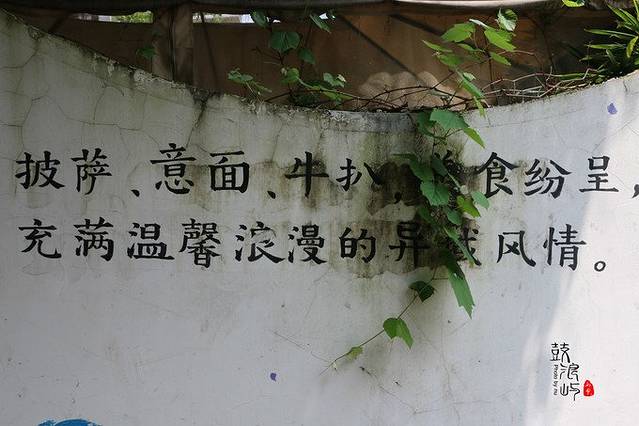 披萨、意面、牛扒，食纷呈，
充满温馨浪漫的异域风情。
鼓浪屿
Photo by nu